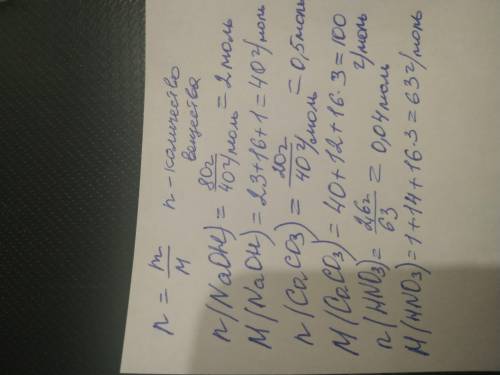 n = m/M n - количество
вещества
n(NaOH) = 80г/40 г/моль = 2 моль
M(NaOH) = 23+16+1 = 40 г/моль
n(CaCO3) = 20г/40 г/моль = 0,5 моль
M(CaCO3) = 40+12+16·3 = 100
г/моль
n(HNO3) = 2,6г/63 = 0,04 моль
M(HNO3) = 1+14+16·3 = 63 г/моль